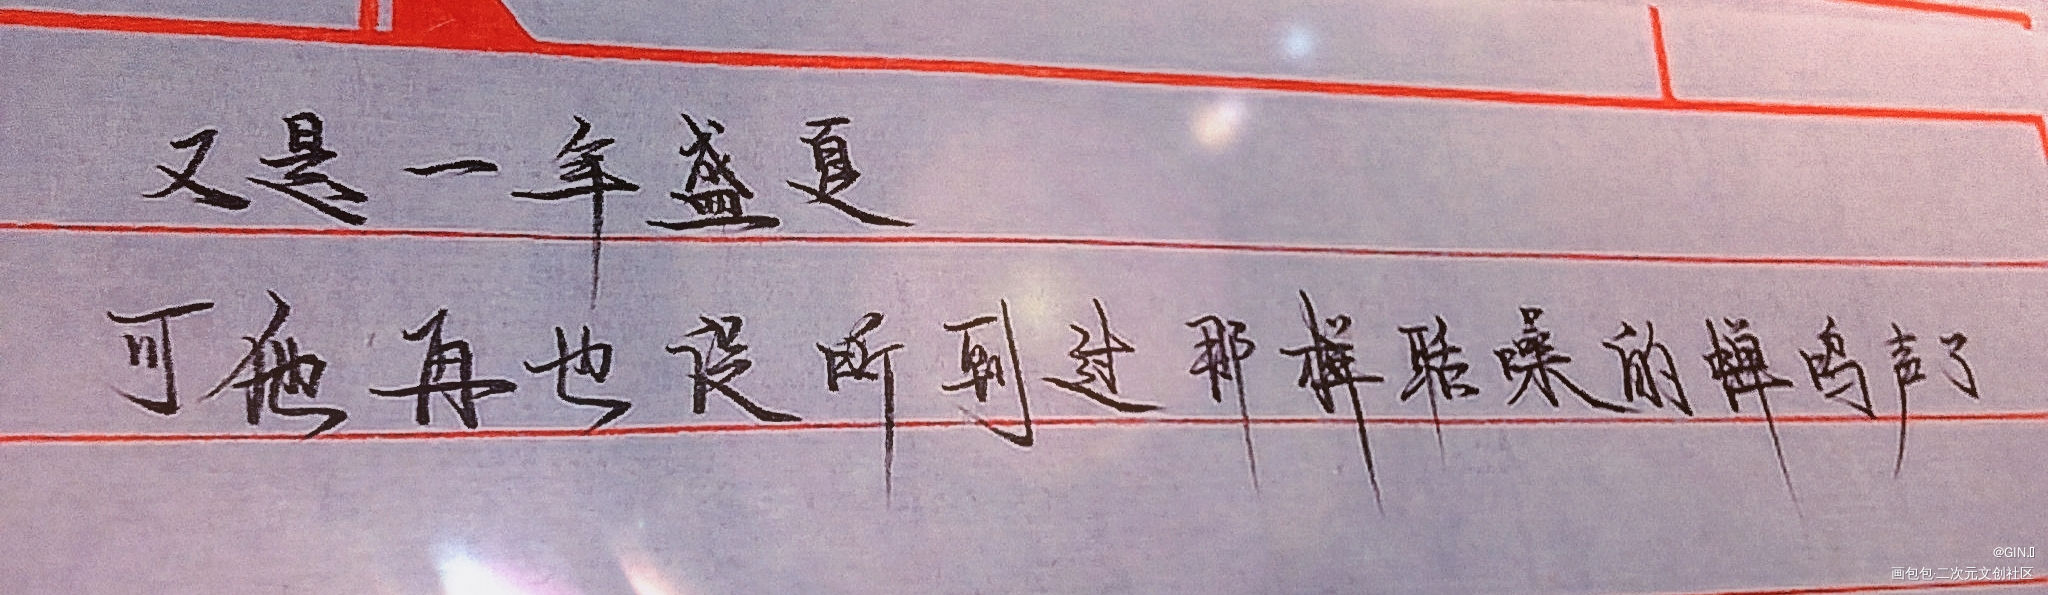 又是一年盛夏
可他再也没听到过那样聒噪的蝉鸣声了
@GIN.
画包包·二次元文创社区